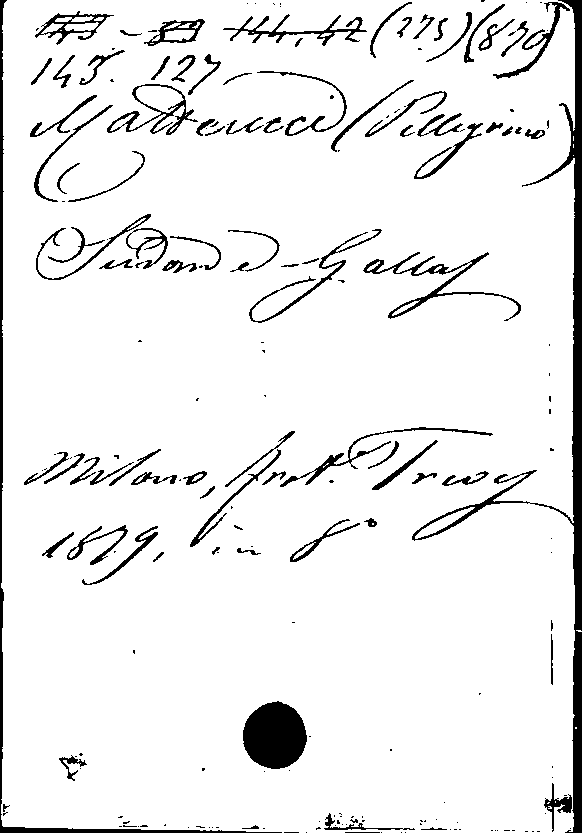 144, 42 (275) (870)
145. 127
Matteucci (Pellegrino)
Sudan e Gallas
Milano, frat. Treves
1879, in 8°